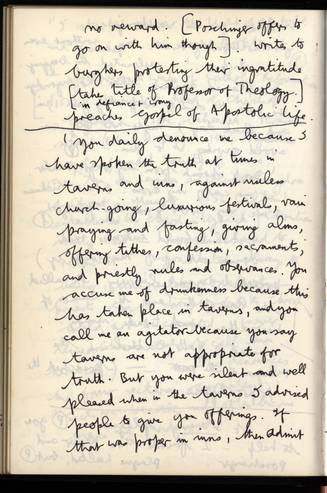 no reward. [Poschinger offers to
go on with him though]. writes to
burghers protesting their ingratitude
[take title of Professor of Theology]
in defiance &
preaches Gospel of Apostolic life.
'You daily denounce me because I
have spoken the truth at times in
taverns and inns, against useless
church-going, luxurious festival, vain
praying and fasting, giving alms,
offering tithes, confession, sacraments,
and priestly rules and observances. You
accuse me of drunkenness because this
has taken place in taverns, and you
call me an agitator because you say
taverns are not appropriate for
truth. But you were silent and well
pleased when in the taverns I advised
people to give you offerings. If
that was proper in inns, then admit